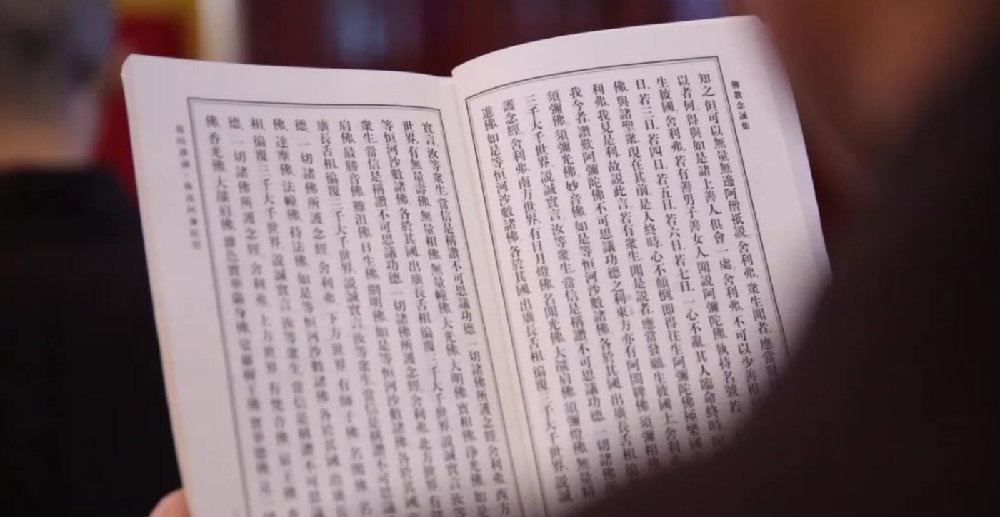 佛教念誦集
知之、但可以無量無邊阿僧祇說、舍利弗、眾生聞者、應當發
以者何、得與如是諸上善人俱會一處、舍利弗、不可以少善根
生彼國、舍利弗、若有善男子善女人、聞說阿彌陀佛、執持名號、若
日、若三日、若四日、若五日、若六日、若七日、一心不亂、其人臨命終時、阿
佛、與諸聖眾、現在其前、是人終時、心不顛倒、即得往生阿彌陀佛極樂國
利弗、我見是利、故說此言、若有眾生、聞是說者、應當發願、生彼國土、舍利
我今者、讚歎阿彌陀佛、不可思議功德之利、東方亦有阿閦鞞佛、須彌相佛
須彌佛、須彌光佛、妙音佛、如是等恒河沙數諸佛、各於其國、出廣長
三千大千世界、說誠實言、汝等眾生、當信是稱讚不可思議功德、一切諸
護念經、舍利弗、南方世界、有日月燈佛、名聞光佛、大燄肩佛、須彌燈佛、無量精
進佛、如是等恒河沙數諸佛、各於其國、出廣長舌相、徧覆三千大千世界、說誠
實言、汝等眾生、當信是稱讚不可思議功德、一切諸佛所護念經、舍利弗、西方
世界、有無量壽佛、無量相佛、無量幢佛、大光佛、大明佛、寶相佛、淨光佛、如是
等恒河沙數諸佛、各於其國、出廣長舌相、徧覆三千大千世界、說誠實言、汝等
眾生、當信是稱讚不可思議功德、一切諸佛所護念經、舍利弗、北方世界、有
肩佛、最勝音佛、難沮佛、日生佛、網明佛、如是等恒河沙數諸佛、各
廣長舌相、徧覆三千大千世界、說誠實言、汝等眾生、當信是稱讚不可
德、一切諸佛所護念經、舍利弗、下方世界、有師子佛、名聞佛、名
佛、達摩佛、法幢佛、持法佛、如是等恒河沙數諸佛、各於其國、出廣長
相、徧覆三千大千世界、說誠實言、汝等眾生、當信是稱讚不可思
德、一切諸佛所護念經、舍利弗、上方世界、有梵音佛、宿王佛
佛、香光佛、大燄肩佛、雜色寶華嚴身佛、娑羅樹王佛、寶華德佛、見